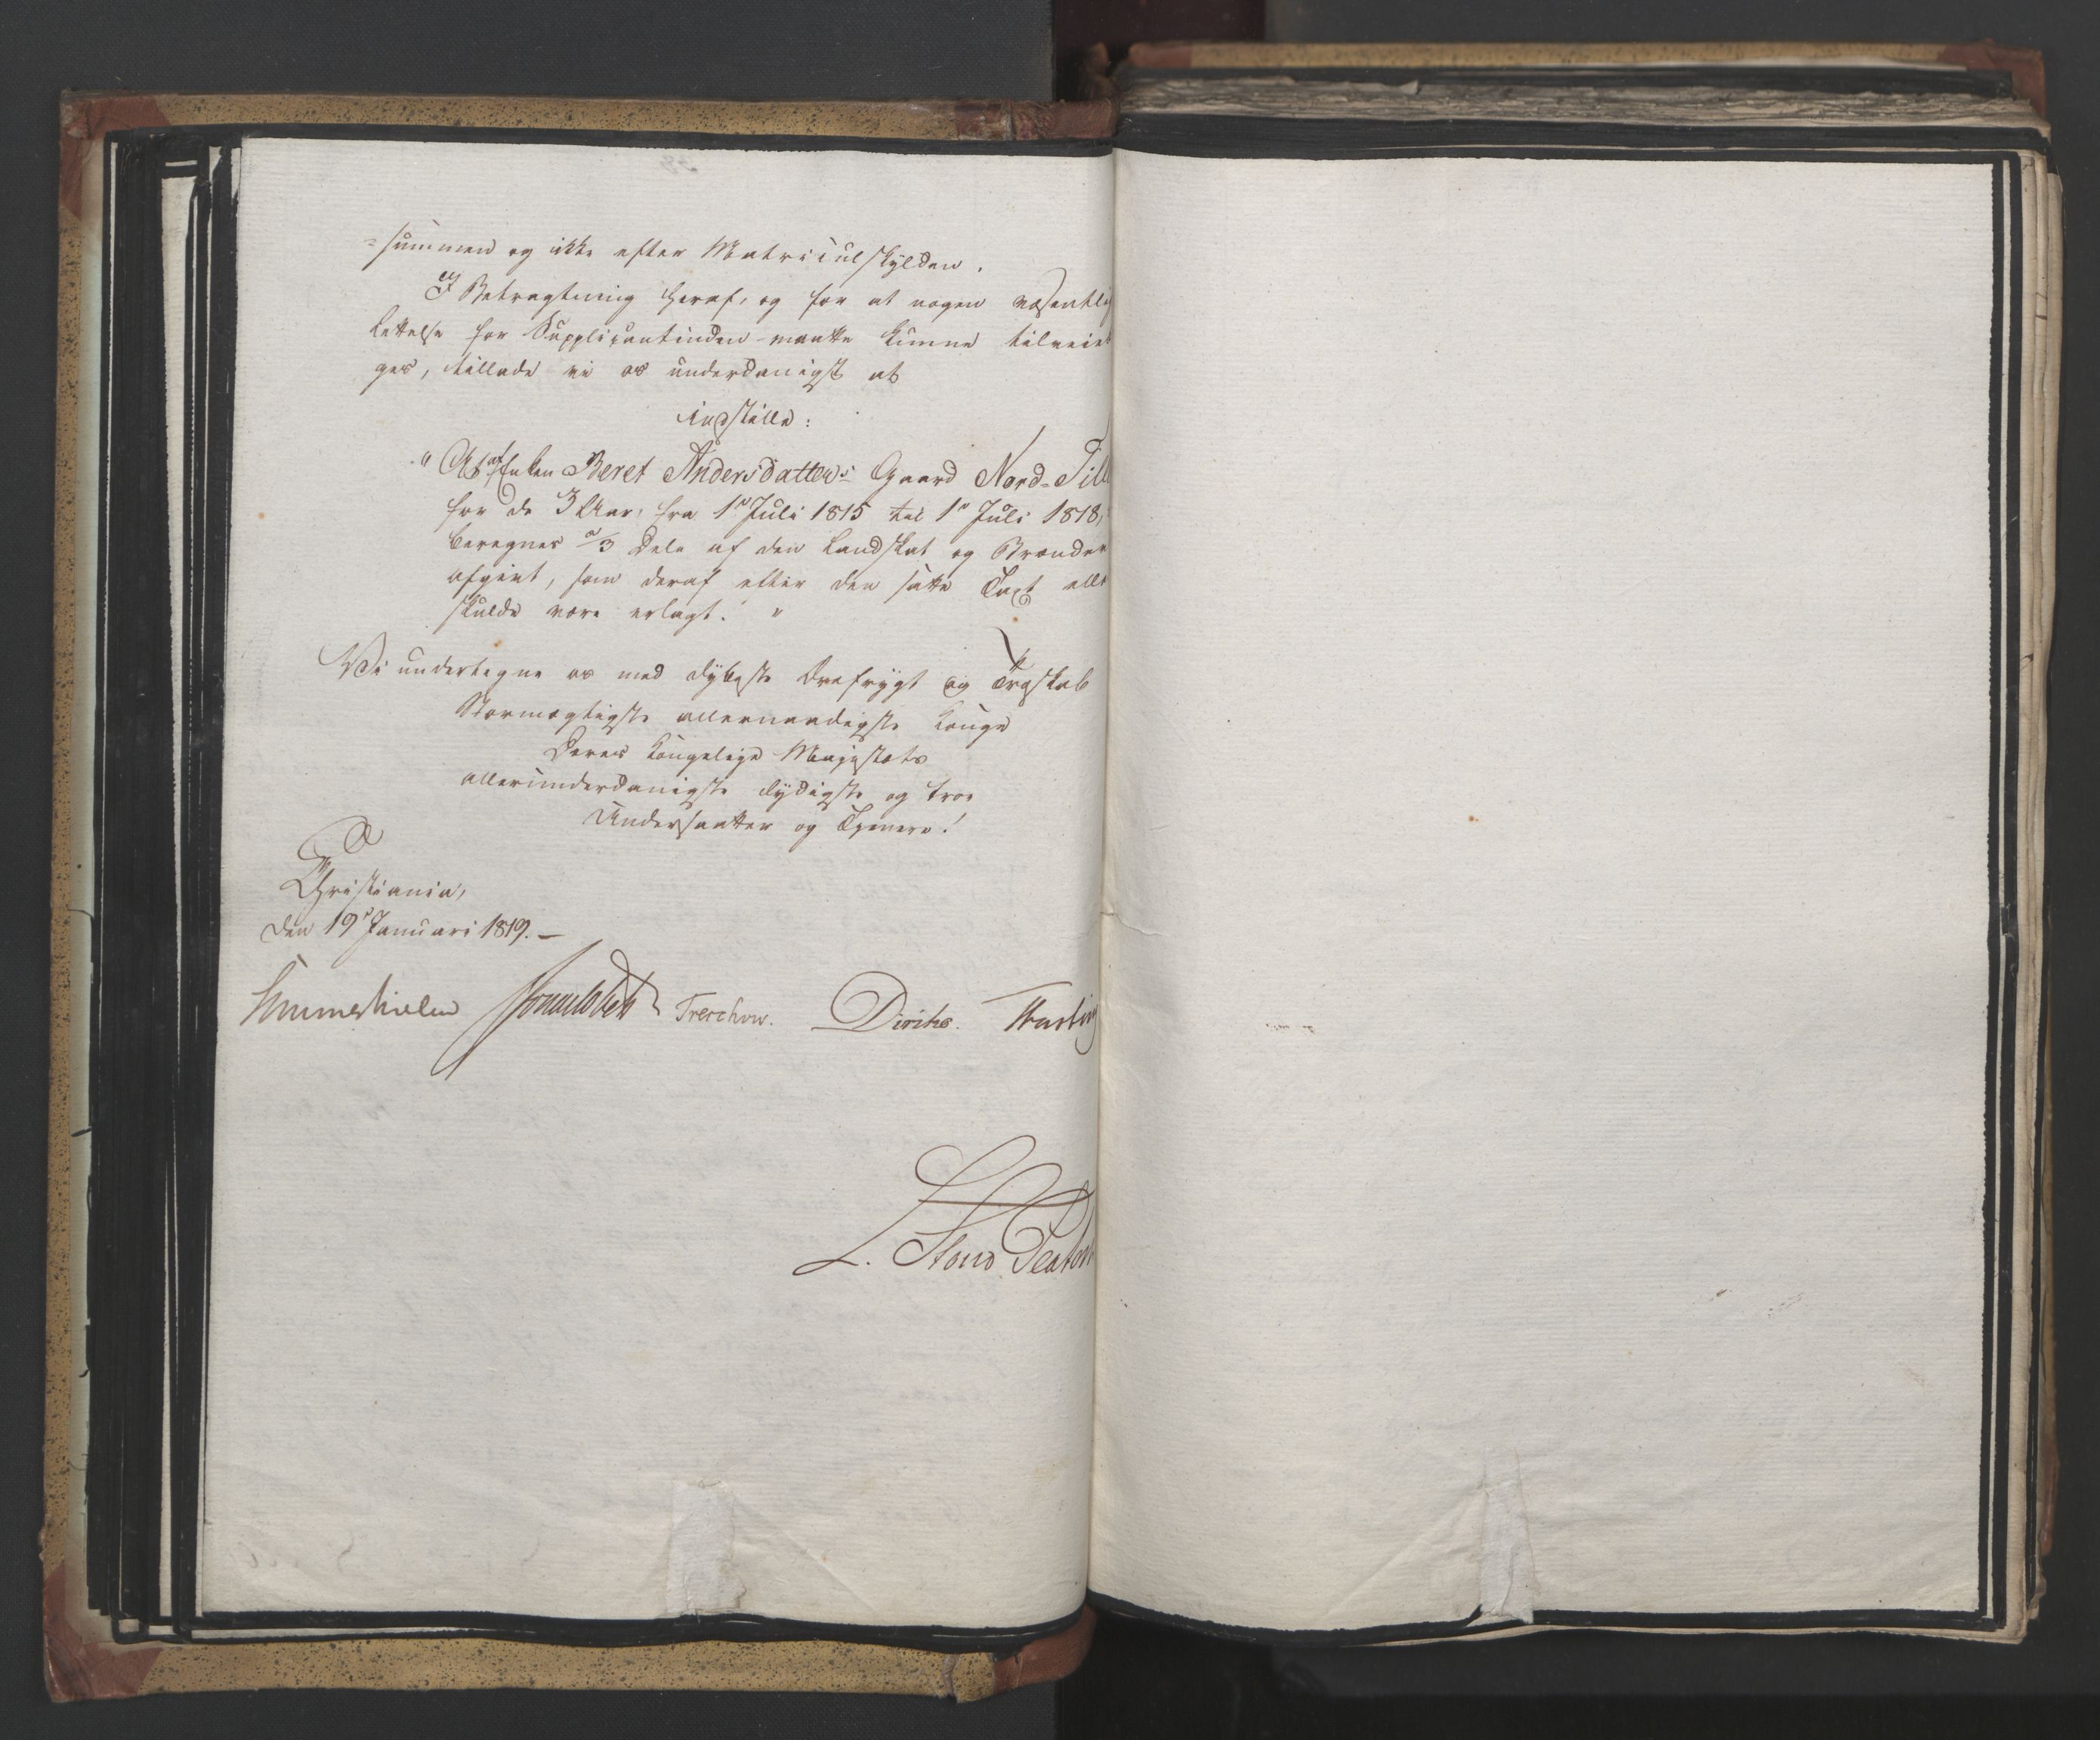 =summen og ikke efter Matriculskylden.
I Betragtning heraf, og for at nogen væsentlig
Lettelse for Supplicantinden maatte kunne tilveiebrin
ges, tillade vi os underdanigst at
indstille:
"At af Enken Beret Andersdatters Gaard Nord-Till
for de 3 Aar, fra 1ste Juli 1815 til 1ste Juli 1818,
beregnes 2/3 Dele af den Landskat og
afgivt, som deraf efter den satte Taxt ellers
skulde være erlagt."
Vi undertegne os med dybeste Ærefrygt og Troskab
Stormægtigste allernaadigste Konge
Deres Kongelige Majestæts
allerunderdanigste lydigste og troe
Undersaatter og Tjenere!
Christiania,
den 19de Januari 1819.–
Sommerhielm Treschow. Diriks. Fasting
L. Stoud Platou